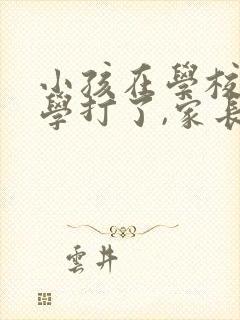 小孩在學校
學打了,家長
雲井